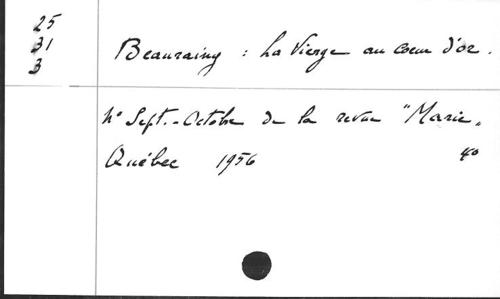 25
31
3
Beauraing : La Vierge au coeur d'or.
N° Sept.-Octobre de la revue "Marie"
Québec 1956 4°